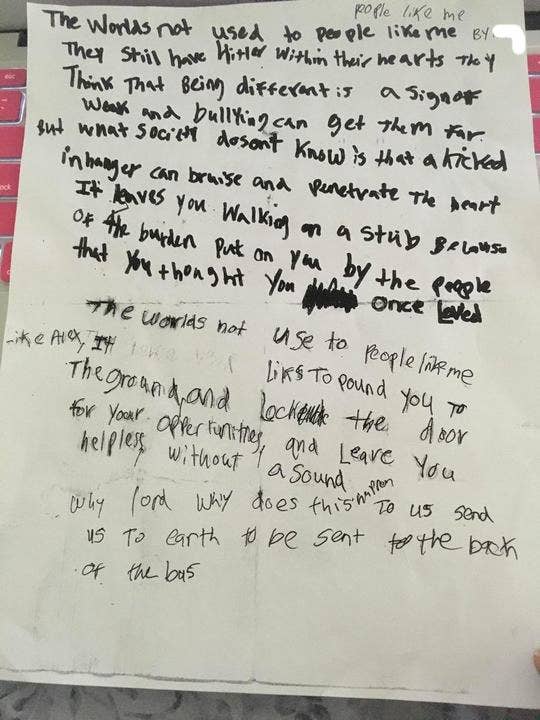 people like me
The Worlds not used to people like me BY
They still have Hitler within their hearts they
Think That Being different is a sign of
weak and bullying can get them far.
But what Society dosent know is that a kicked
in hanger can bruise and penetrate the heart
It leaves you Walking on a stub Because
of the burden put on you by the people
that you thought you once Loved
The worlds not use to People like me
like Alex, It likes To pound you To
The ground and Lock the door
for your opportunities and Leave You
helpless without a Sound
why lord why does this happen To us send
us To earth to be sent to the back
of the bus